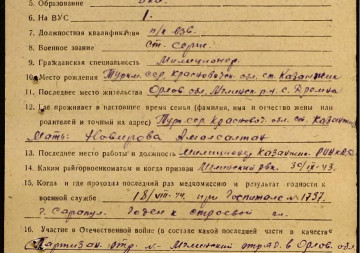 5. Образование
6. На ВУС 1.
7. Должностная квалификация п/к отд.
8. Военное звание ст. серж.
9. Гражданская специальность Милиционер
10. Место рождения Туркм. сср. Красновод. обл. ст. Казанджик
11. Последнее место жительства Орлов. обл.
12. Где проживает в настоящее время семья (фамилия, имя и отчество жены или
родителей и точный их адрес) Турк. сср Краснов. обл. ст. Казанд
Мать:
13. Последнее место работы и должность милиционер Казандж.
14. Каким райгорвоенкоматом и когда призван рвк. 43.
15. Когда и где проходил последний раз медкомиссию и результат годности к
военной службе 18/ 44. при Госпитале № 1751.
г. Сарапул. Годен к строевой сл.
16. Участие в Отечественной войне (в составе какой последней части в качест
Партизан. отр. отряд в Орлов. обл